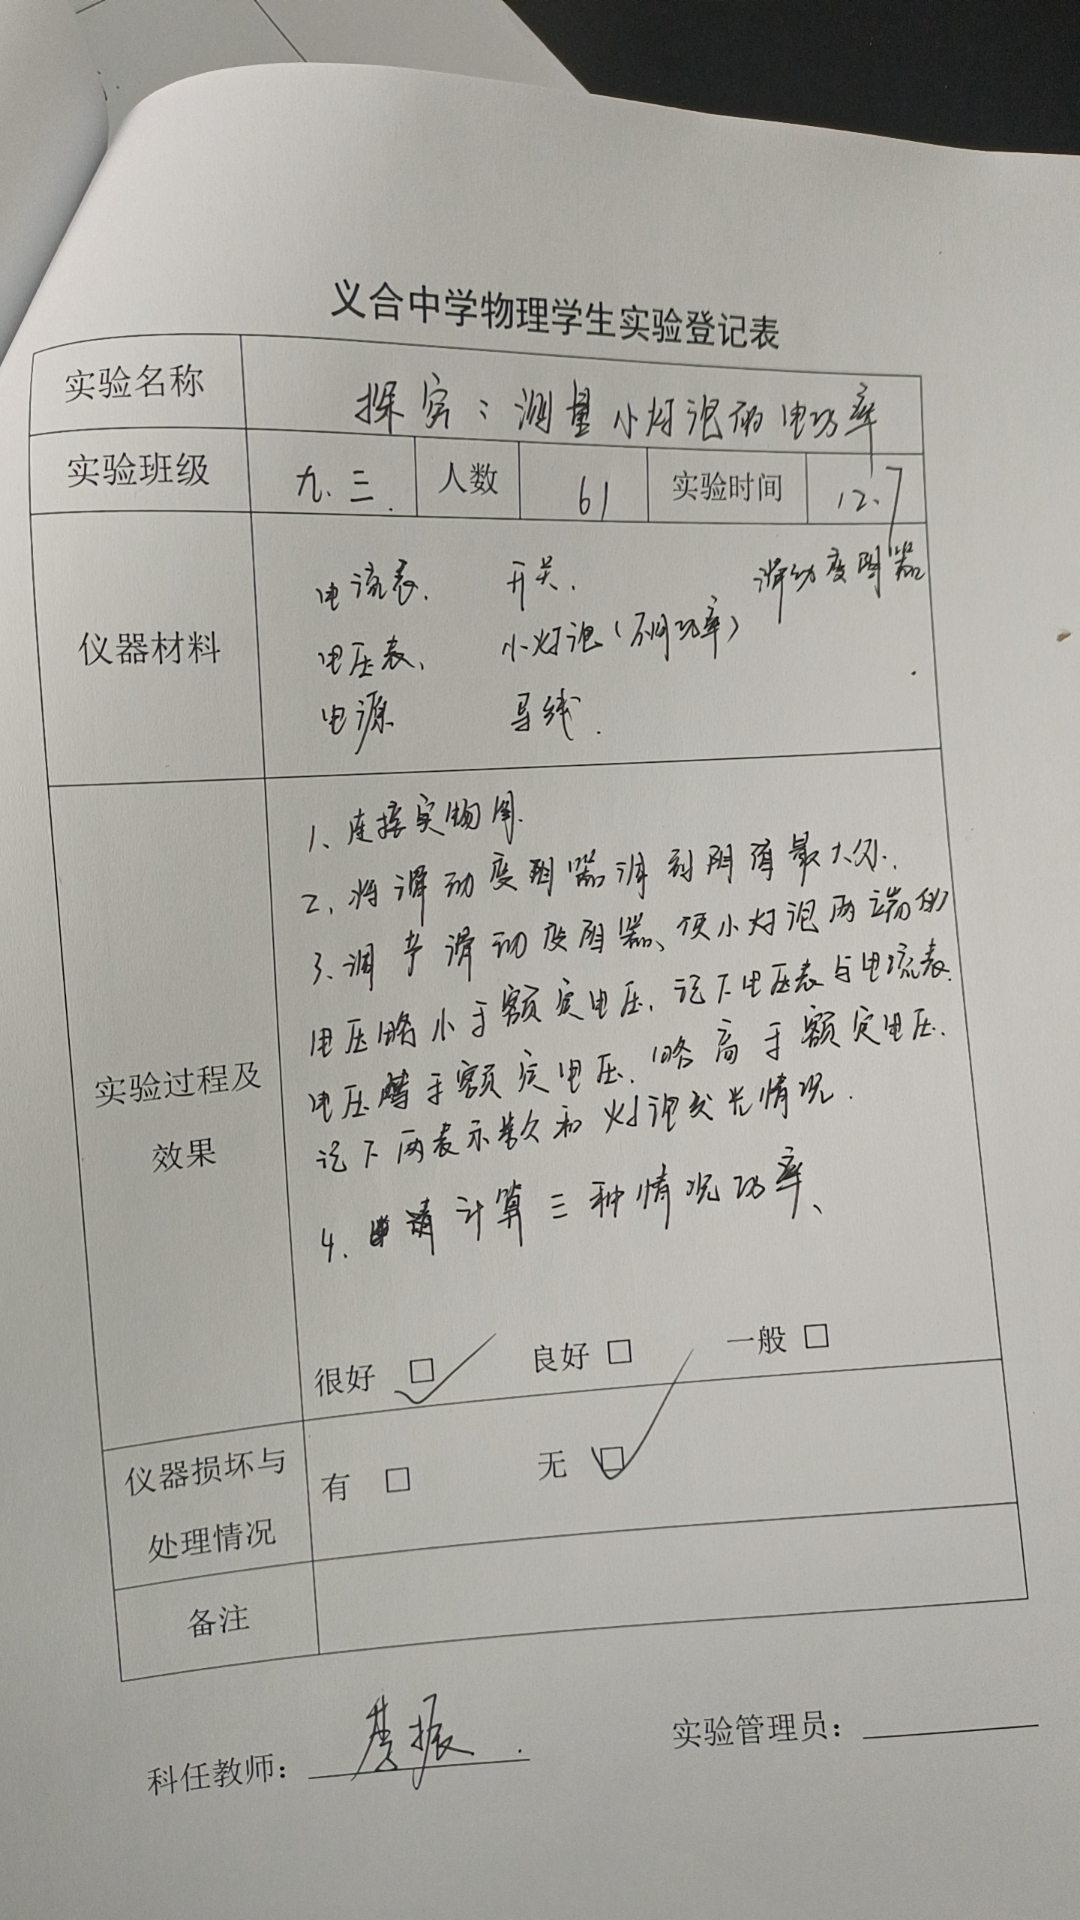 义合中学物理学生实验登记表
实验名称 探究：测量小灯泡的电功率
实验班级 九.三. 人数 61 实验时间 12.7
仪器材料
电流表. 开关. 滑动变阻器
电压表. 小灯泡(不同功率)
电源 导线.
实验过程及效果
1、连接实物图.
2、将滑动变阻器调到阻值最大处.
3、调节滑动变阻器、使小灯泡两端的
电压略小于额定电压、记下电压表与电流表.
电压等于额定电压、略高于额定电压.
记下两表示数和灯泡发光情况.
4、申请计算三种情况功率、
很好 □ 良好 □ 一般 □
仪器损坏与处理情况
有 □ 无 □
备注
科任教师： 振 实验管理员：